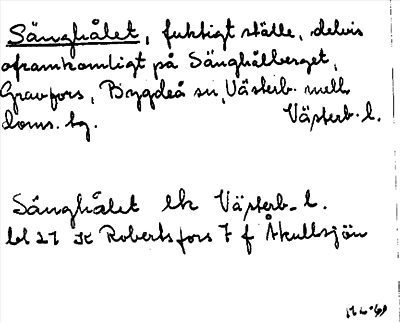 Sänghålet, fuktigt ställe, delvis
oframkomligt på Sänghålberget,
Gravfors, Bygdeå sn, Västerb. mell.
doms. bg. Västerb. l.
Sänghålet lk Västerb. l.
bl 21 K Robertsfors 7 f Åkullsjön